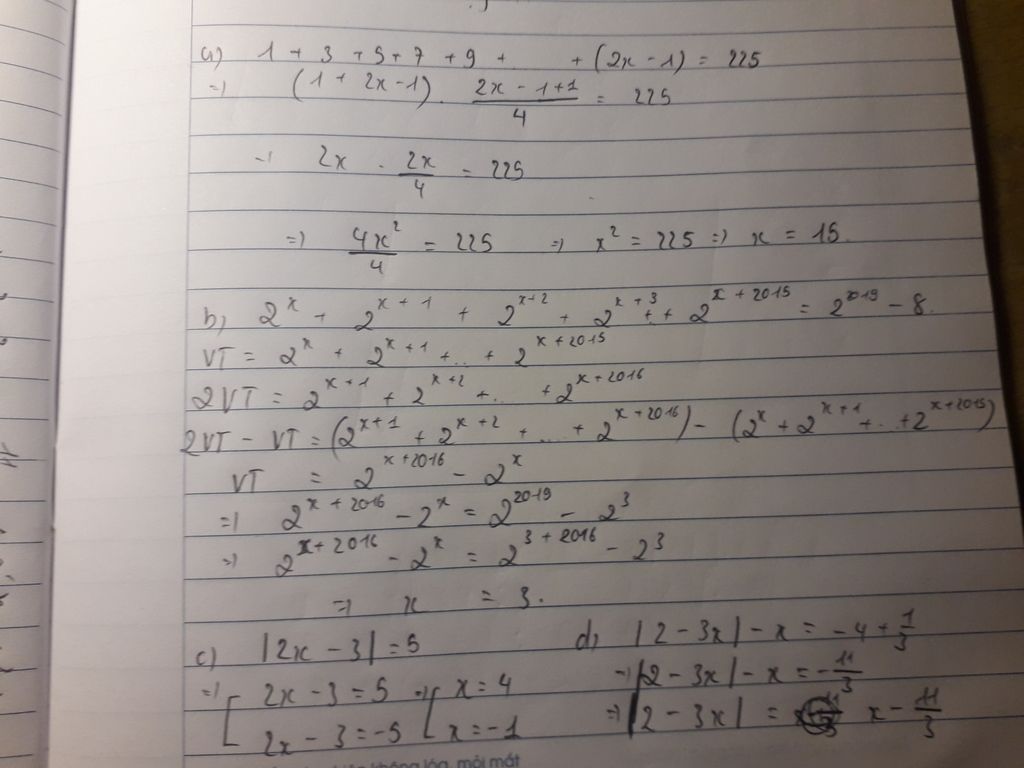 a) 1 + 3 + 5 + 7 + 9 + + (2x - 1) = 225
=) (1 + 2x - 1) . \frac{2x - 1 + 1}{4} = 225
=) 2x . \frac{2x}{4} = 225
=) \frac{4x^2}{4} = 225 =) x^2 = 225 =) x = 15.
b) 2^x + 2^{x+1} + 2^{x+2} + 2^{x+3} + .. + 2^{x+2015} = 2^{2019} - 8.
VT = 2^x + 2^{x+1} + .. + 2^{x+2015}
2VT = 2^{x+1} + 2^{x+2} + .. + 2^{x+2016}
2VT - VT = (2^{x+1} + 2^{x+2} + ... + 2^{x+2016}) - (2^x + 2^{x+1} + .. + 2^{x+2015})
VT = 2^{x+2016} - 2^x
=) 2^{x+2016} - 2^x = 2^{2019} - 2^3
=) 2^{x+2016} - 2^x = 2^{3+2016} - 2^3
=) x = 3.
c) |2x - 3| = 5
=) [ 2x - 3 = 5 =) [ x = 4
2x - 3 = -5 x = -1
d) |2 - 3x| - x = -4 + \frac{1}{3}
=) |2 - 3x| - x = -\frac{11}{3}
=) |2 - 3x| = x - \frac{11}{3}